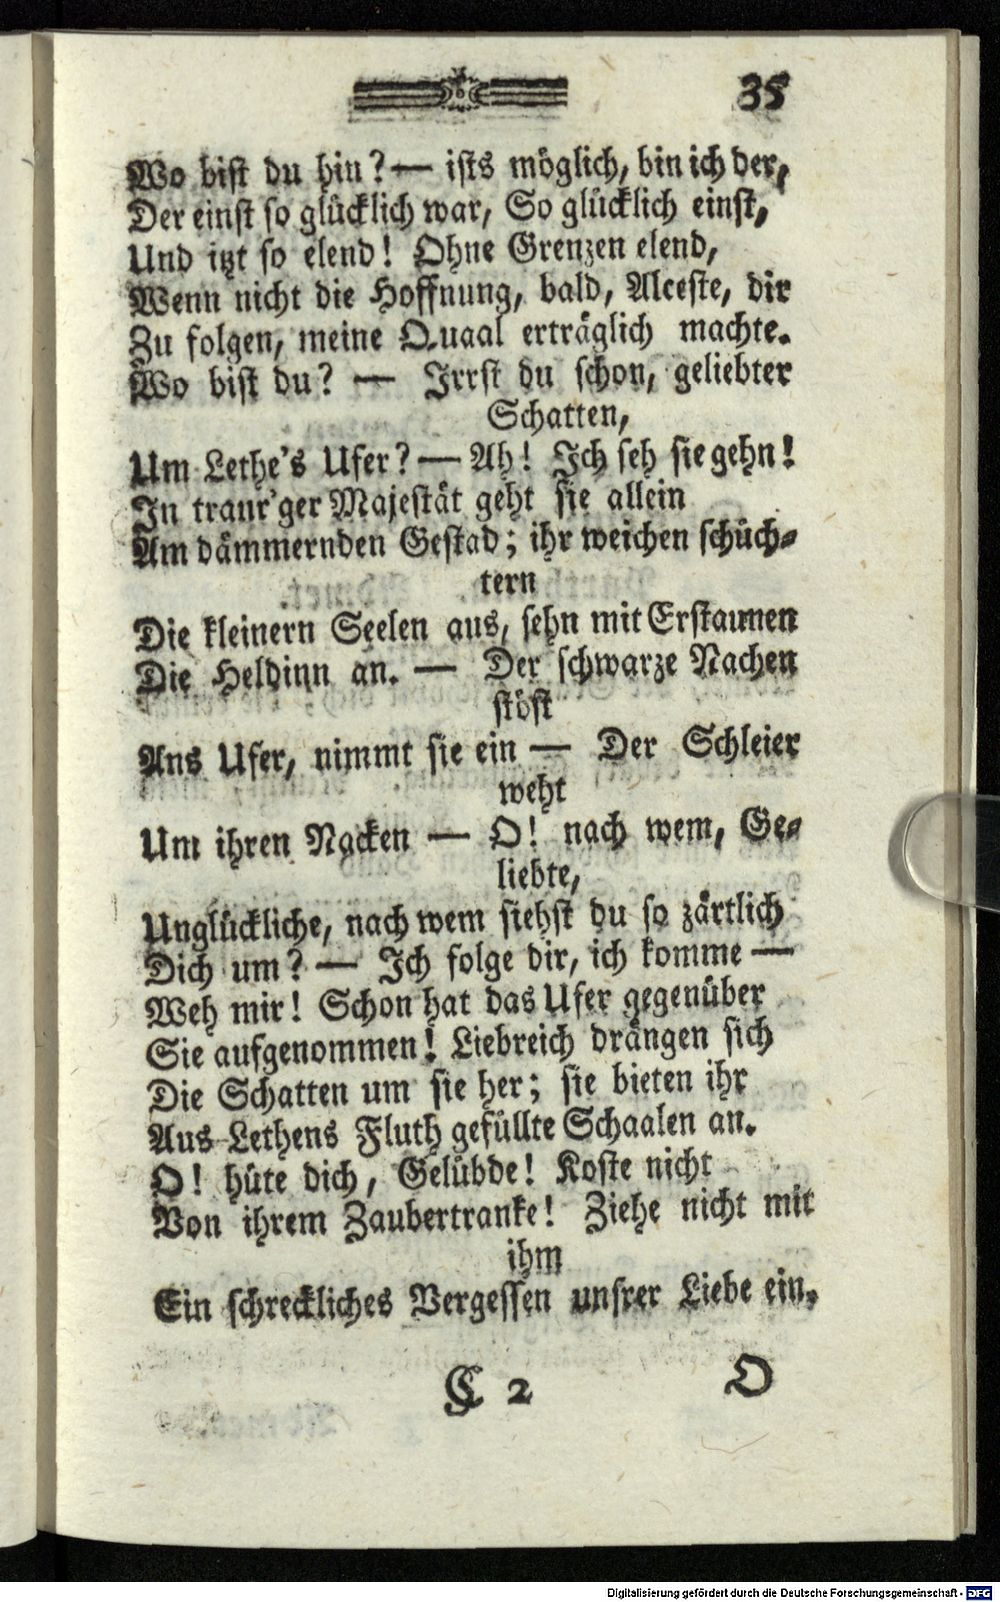 35
Wo bist du hin? — ists möglich, bin ich der,
Der einst so glücklich war, So glücklich einst,
Und itzt so elend! Ohne Grenzen elend,
Wenn nicht die Hoffnung, bald, Alceste, dir
Zu folgen, meine Quaal erträglich machte.
Wo bist du? — Irrst du schon, geliebter
Schatten,
Um Lethe's Ufer? — Ah! Ich seh sie gehn!
In traur'ger Majestät geht sie allein
Am dämmernden Gestad; ihr weichen schüch-
tern
Die kleinern Seelen aus, sehn mit Erstaunen
Die Heldinn an. — Der schwarze Nachen
stöst
Ans Ufer, nimmt sie ein — Der Schleier
weht
Um ihren Nacken — O! nach wem, Ge-
liebte,
Unglückliche, nach wem siehst du so zärtlich
Dich um? — Ich folge dir, ich komme —
Weh mir! Schon hat das Ufer gegenüber
Sie aufgenommen! Liebreich drängen sich
Die Schatten um sie her; sie bieten ihr
Aus Lethens Fluth gefüllte Schaalen an.
O! hüte dich, Gelübde! Koste nicht
Von ihrem Zaubertranke! Ziehe nicht mit
ihm
Ein schreckliches Vergessen unsrer Liebe ein.
C 2 O
Digitalisierung gefördert durch die Deutsche Forschungsgemeinschaft - DFG